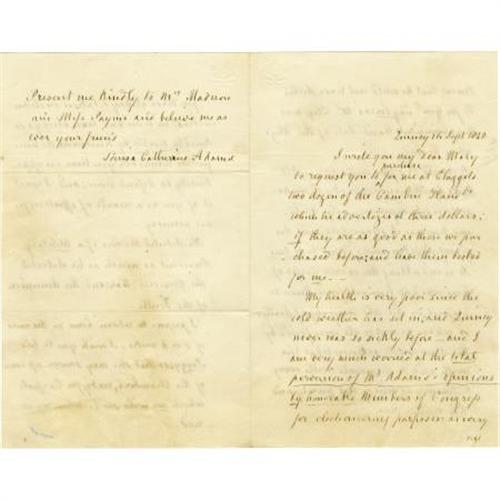 Present me kindly to Mrs. Madison
and Miss Payne and believe me as
ever your friend
Louisa Catherine Adams
Quincy Sept 1840
I wrote you my dear Mary
to request you to purchase for me at Claggets
two dozen of the Cambric Hand
which he advertizes at three dollars;
if they are as good as those we pur
chased before; and have them booked
for me —
My health is very poor since the
cold weather has set in; and Quincy
never was so sickly before — and I
am very much worried at the total
perversion of Mr Adams's opinions
by honorable Members of Congress
for electioneering purposes in very